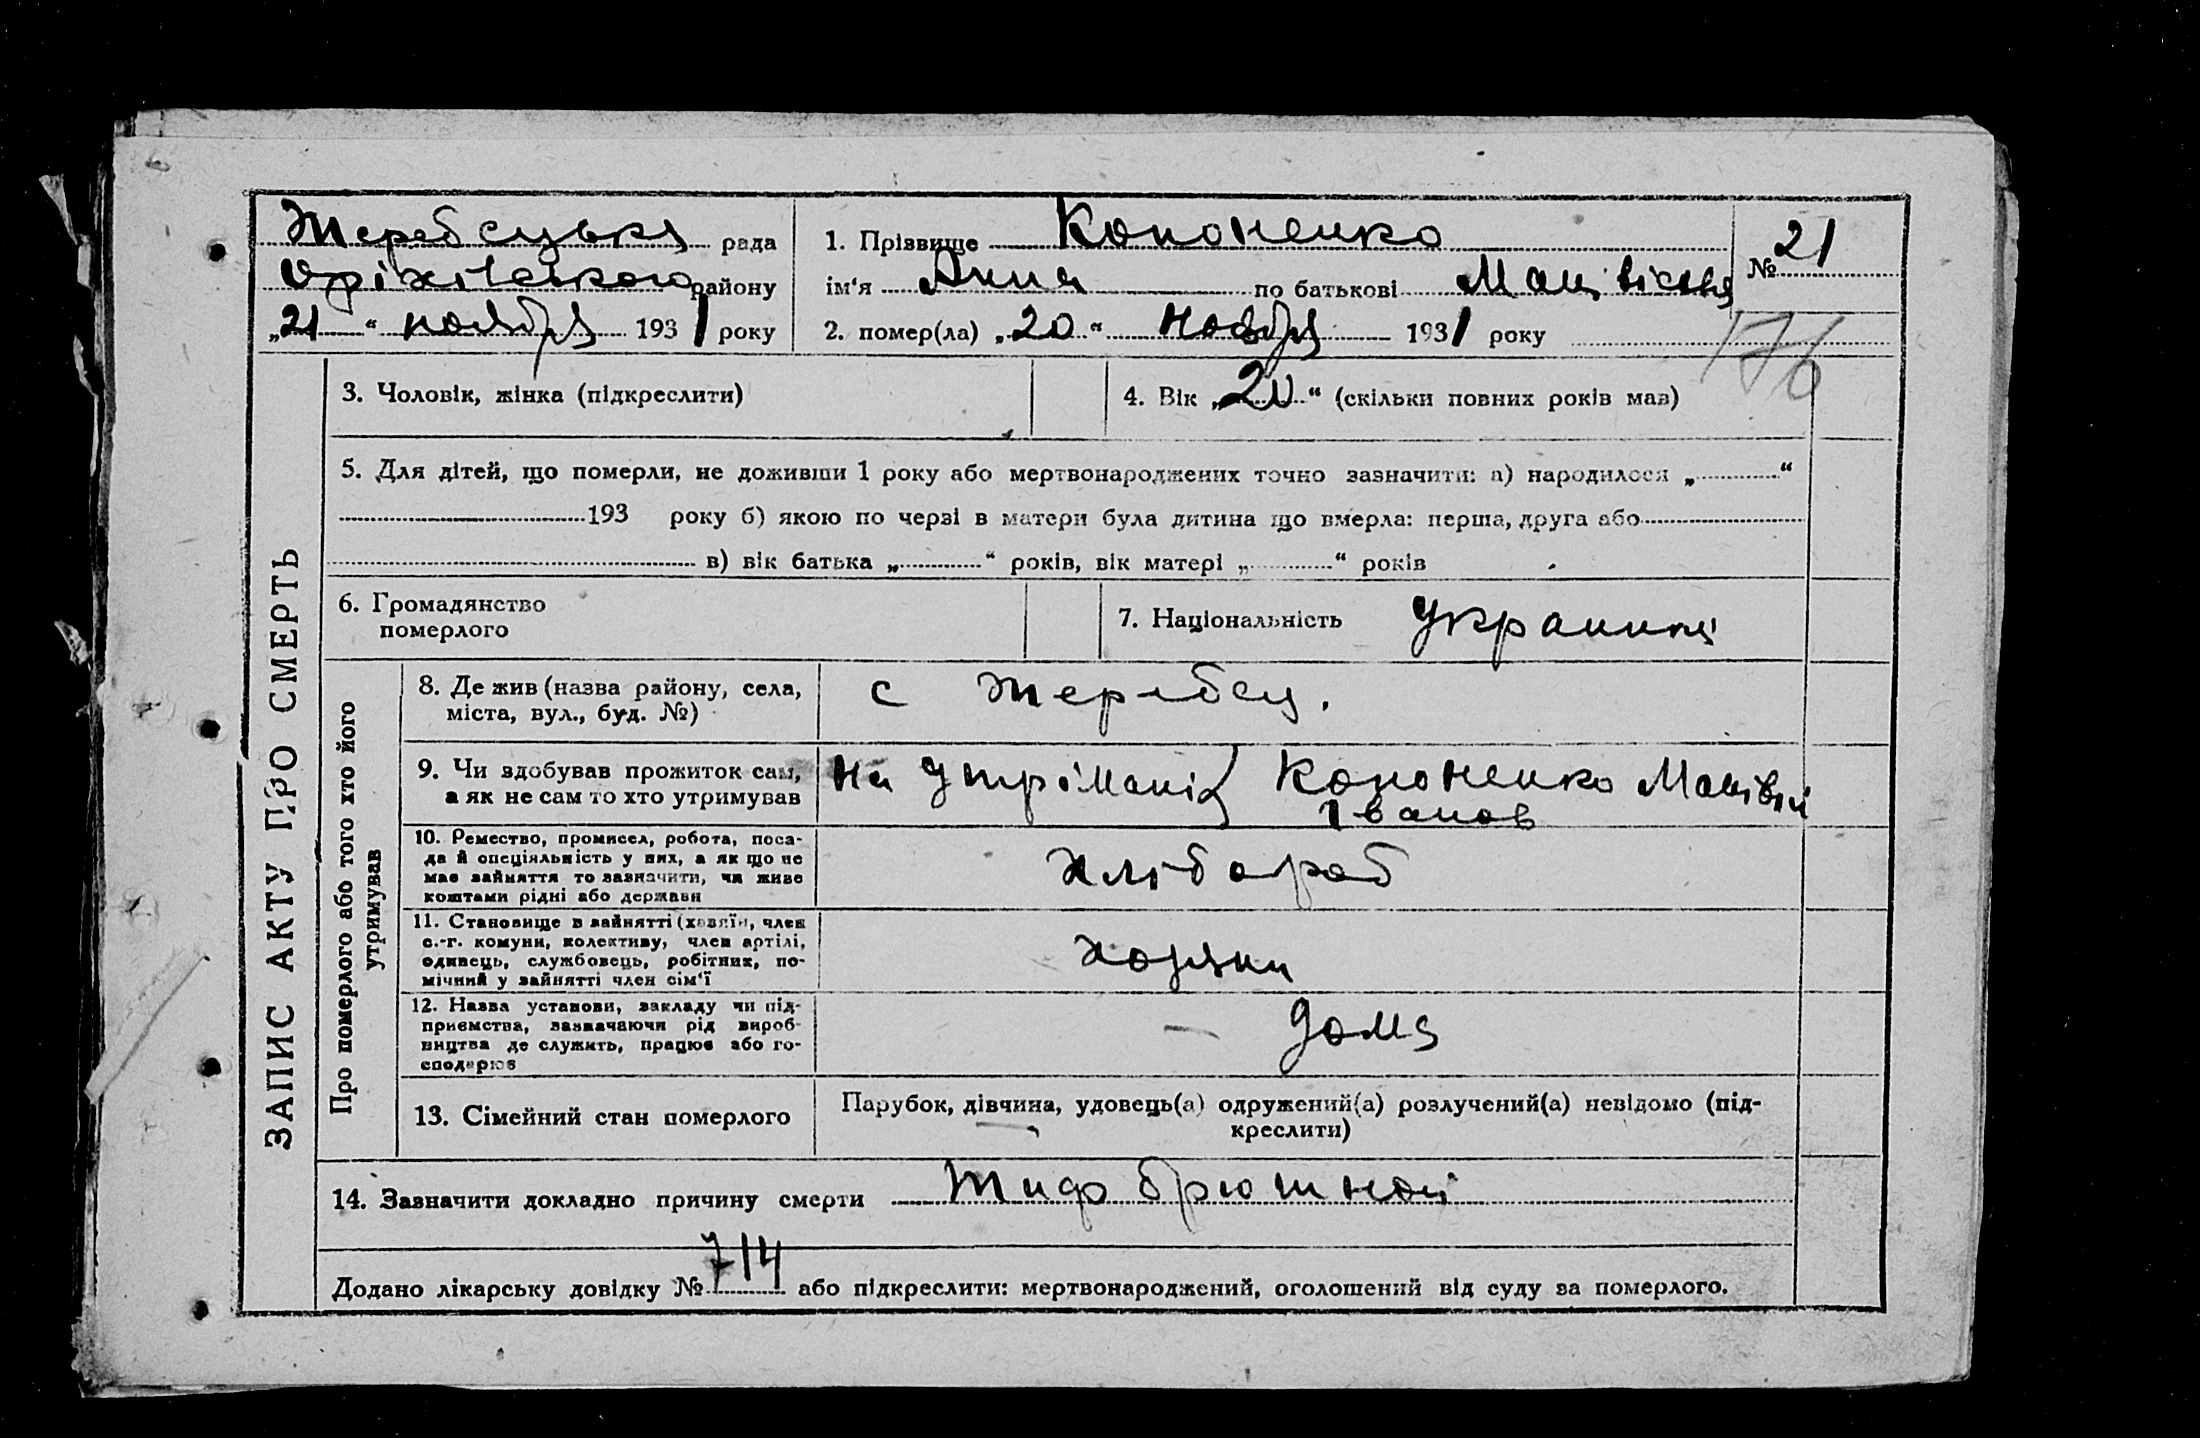 Жеребецька рада
Оріхівського району
„21“ ноября 1931 року
1. Прізвище Кононенко
ім‘я Анна по батькові Матвієвна
2. помер(ла) „20“ ноября 1931 року
№ 21
176
ЗАПИС АКТУ ПРО СМЕРТЬ
3. Чоловік, жінка (підкреслити)
4. Вік „20“ (скільки повних років мав)
5. Для дітей, що померли, не доживши 1 року або мертвонароджених точно зазначити: а) народилося „ “
193 року б) якою по черзі в матери була дитина що вмерла: перша, друга або
в) вік батька „ “ років, вік матері „ “ років
6. Громадянство
померлого
7. Національність
Про померлого або того хто його
утримував
8. Де жив (назва району, села,
міста, вул., буд. №)
с Жеребец.
9. Чи здобував прожиток сам,
а як не сам то хто утримував
На Кононенко
Іванов
10. Ремество, промисел, робота, поса-
да й спеціяльність у них, а як що не
має зайняття то зазначити, чи живе
коштами рідні або держави
хлібороб
11. Становище в зайнятті (хазяїн, член
с.-г. комуни, колективу, член артілі,
одинець, службовець, робітник, по-
мічний у зайнятті член сім‘ї
хозяин
12. Назва установи, закладу чи під-
приємства, зазначаючи рід вироб-
ництва де служить, працює або го-
сподарює
— дома
13. Сімейний стан померлого
Парубок, дівчина, удовець(а) одружений(а) розлучений(а) невідомо (під-
креслити)
14. Зазначити докладно причину смерти Тиф брюшной
Додано лікарську довідку № 714 або підкреслити: мертвонароджений, оголошений від суду за померлого.